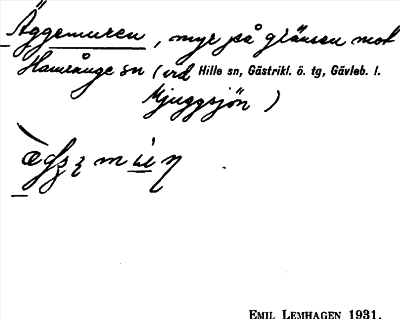 Äggemuren, myr på gränsen mot
Hamrånge sn (vid Hille sn, Gästrikl. ö. tg, Gävleb. l.
Mjuggsjön)
EMIL LEMHAGEN 1931.